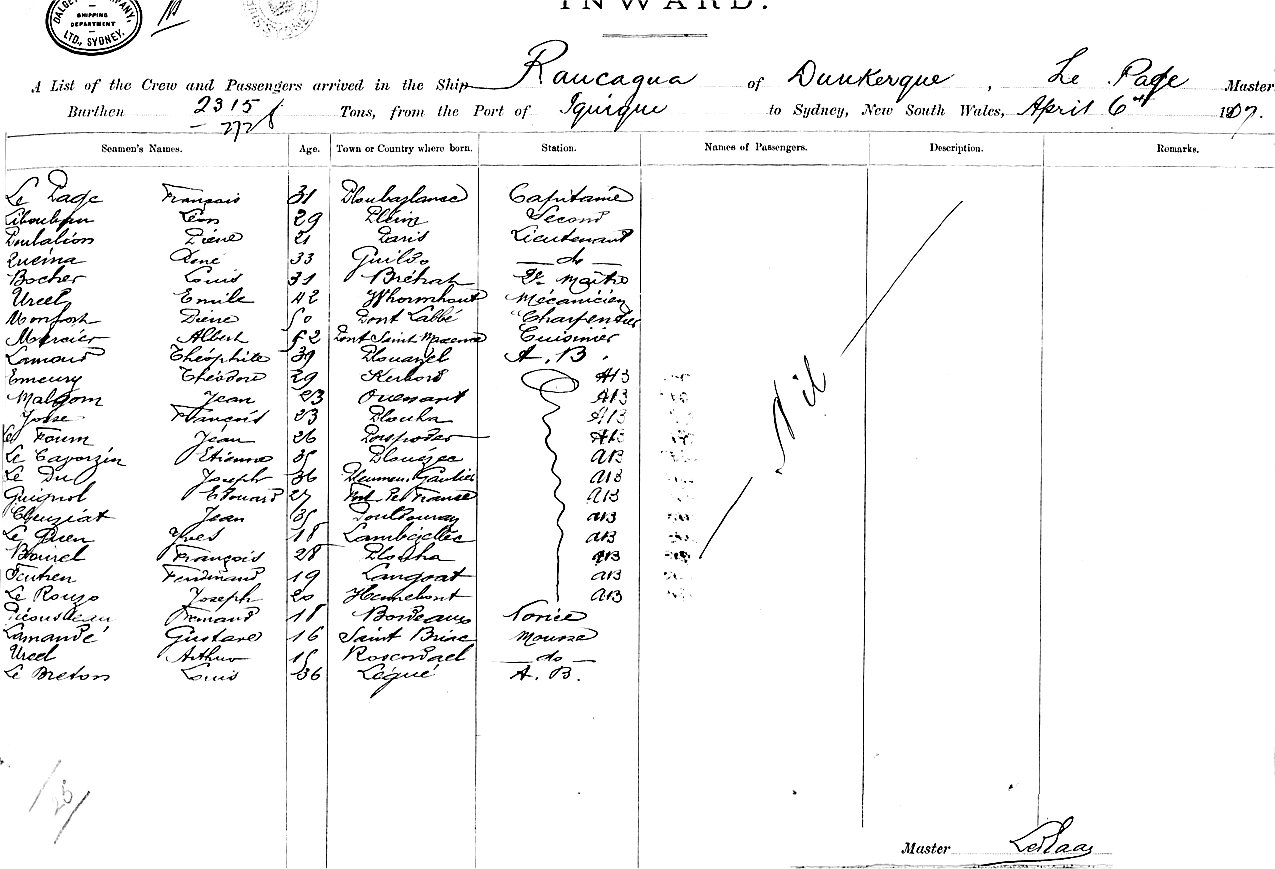 DALGETY COMPANY, LTD., SYDNEY. SHIPPING DEPARTMENT
INWARD.
A List of the Crew and Passengers arrived in the Ship Rancagua of Dunkerque, Le Page Master
Burthen 2315 Tons, from the Port of Iquique to Sydney, New South Wales, April 6th 1907.
2728
Seamen's Names. Age. Town or Country where born. Station. Names of Passengers. Description. Remarks.
Le Page François 31 Ploubazlanec Capitaine
Léon 29 Second
21 Paris Lieutenant
René 33 Guildo do
Bocher Louis 31 Bréhat Maître
Urcel Emile 42 Whormhout Mécanicien
Monfort Pierre 50 Pont Labbé Charpentier
Mercier Albert 52 Pont Saint Maxence Cuisinier
Lamour Théophile 39 Plouarzel A.B.
Emeury Théodore 29 AB
Malgorn Jean 23 Ouessant AB
Josse François 23 Plouha AB
Le Fourn Jean 26 Porspoder AB
Le Cavorzin Etienne 35 Plouézec AB
Le Du Joseph 36 Pleumeur Gautier AB
Guignol Edouard 27 AB
Jean 35 AB
Le Guen Yves 18 Lambézellec AB
François 28 Plouha AB
Ferdinand 19 Langoat AB
Le Rouzo Joseph 20 Hennebont AB
Fernand 18 Bordeaux Novice
Lamandé Gustave 16 Saint Briac Mousse
Urcel Arthur 15 Rosendael do
Le Breton Louis 36 Légué A.B.
Nil
25
Master Le Page